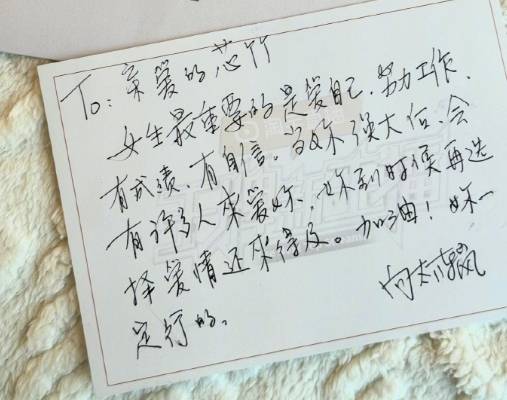 To: 亲爱的芯竹
女生最重要的是爱自己.努力工作.
有成绩.有自信。当妳强大后.会
有许多人来爱妳.妳到时候再选
择爱情还来得及。加油！妳一
定行的。
向太陈岚